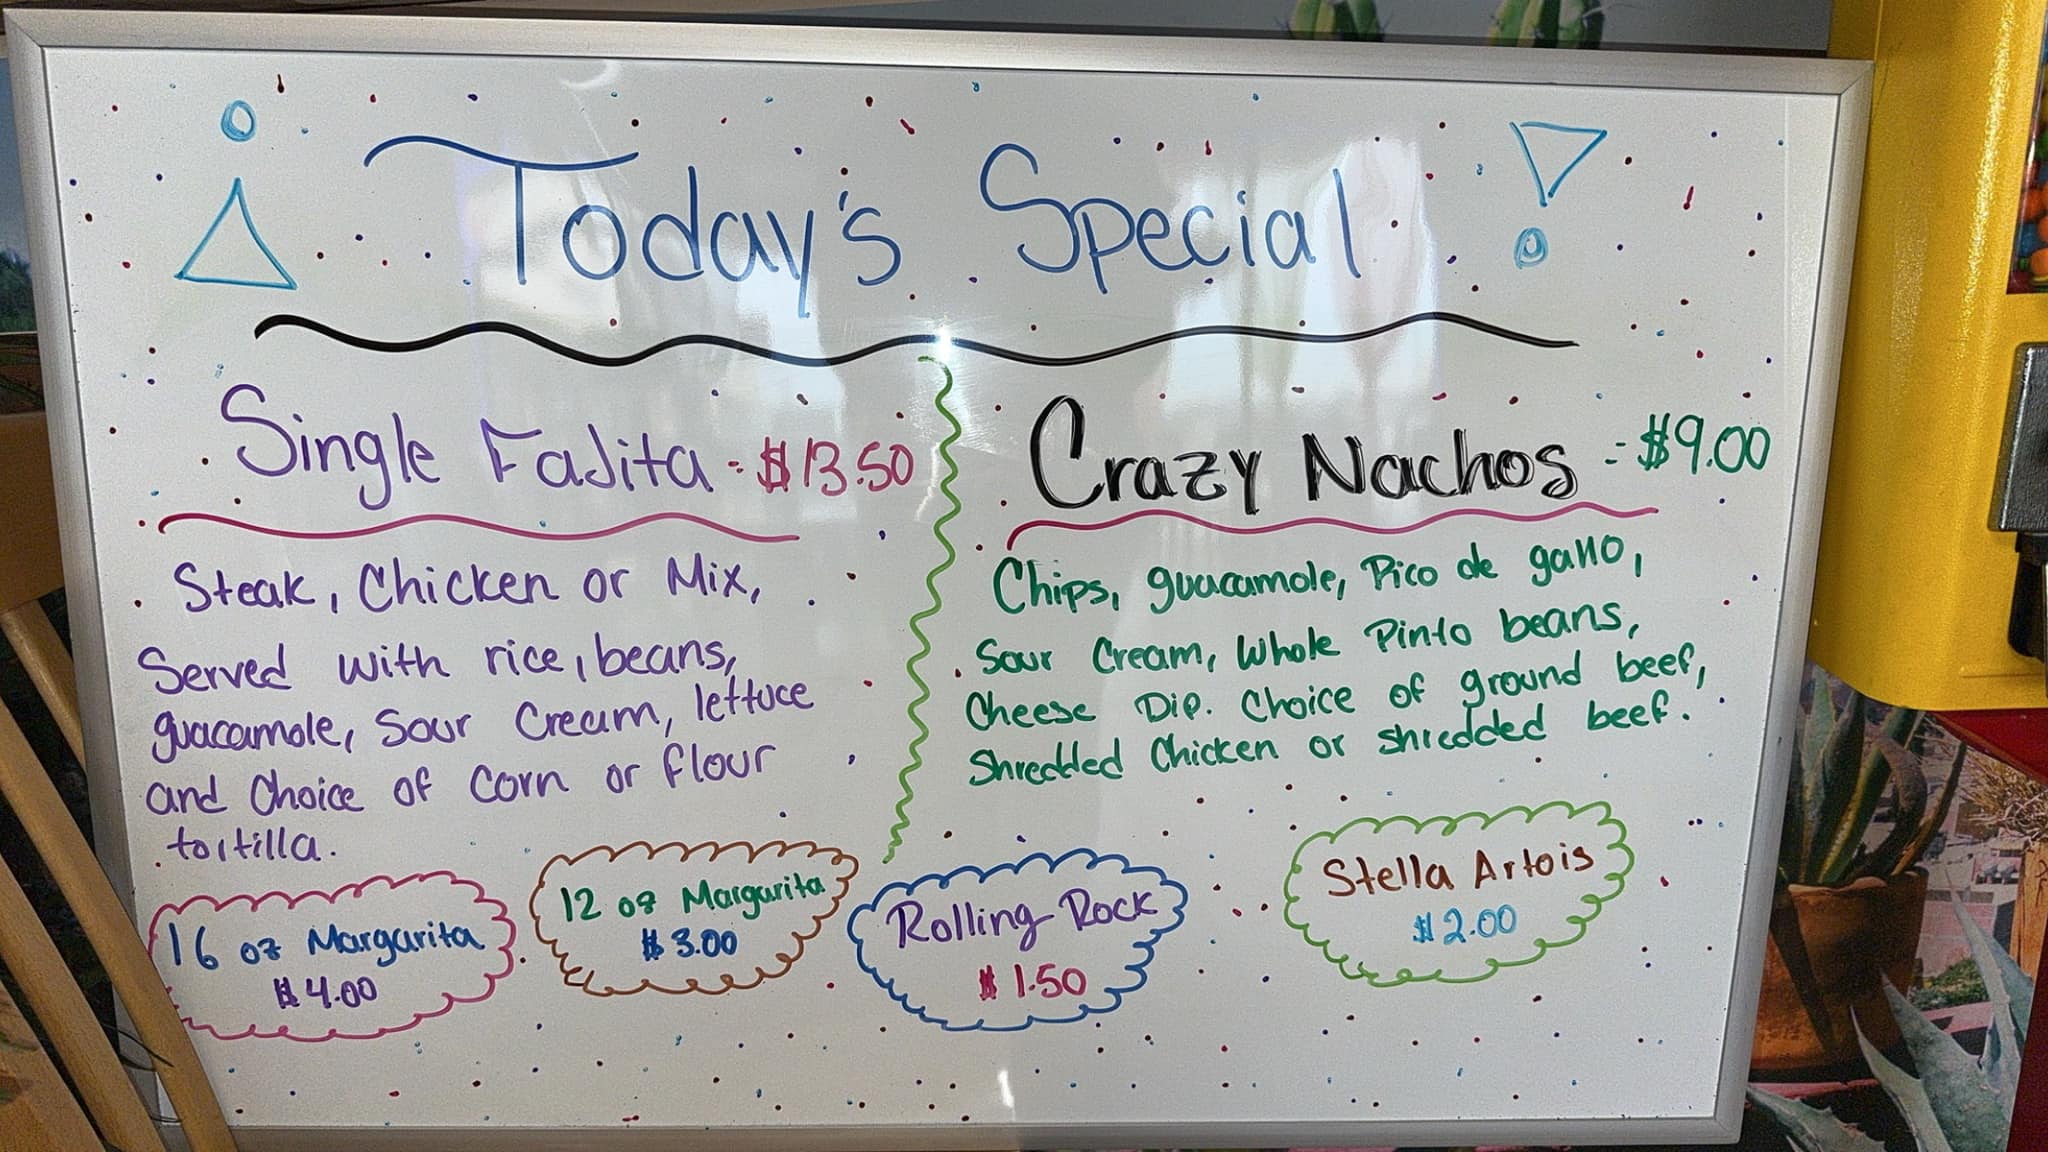 Today's Special
Single Fajita - $13.50
Steak, Chicken or Mix,
Served with rice, beans,
guacamole, Sour Cream, lettuce
and Choice of Corn or flour
tortilla.
Crazy Nachos - $9.00
Chips, guacamole, Pico de gallo,
Sour Cream, Whole Pinto beans,
Cheese Dip. Choice of ground beef,
Shredded Chicken or shredded beef.
16 oz Margarita
$4.00
12 oz Margarita
$3.00
Rolling Rock
$1.50
Stella Artois
$2.00